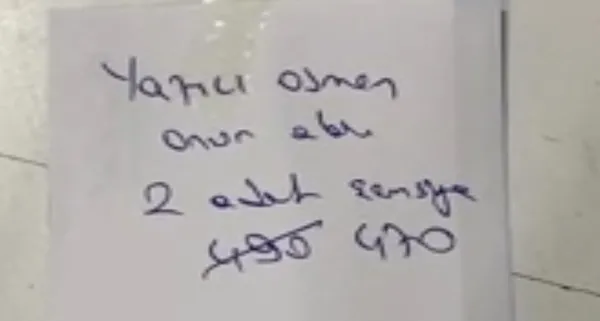 Yazıcı osman
onur abi
2 adet şemsiye
495 470